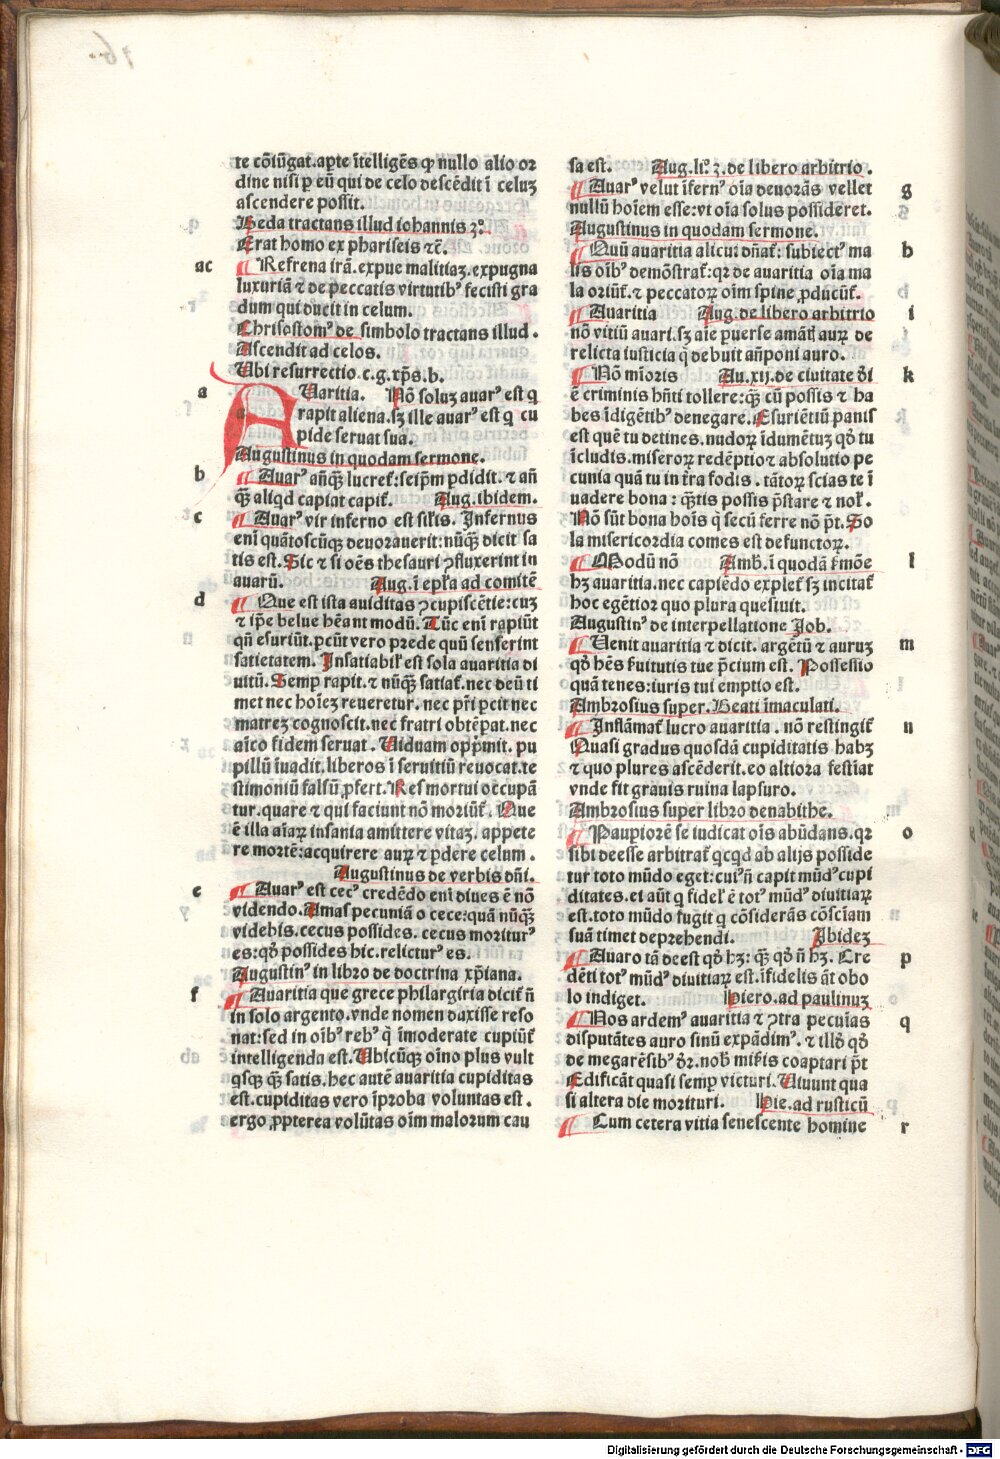 te cōiūgat.apte ītelligēs ꝙ nullo alio or
dine nisi p eū qui de celo descēdit ī celuꝫ
ascendere possit.
Beda tractans illud iohannis 3°.
Erat homo ex phariseis ⁊c̄.
ac
Refrena irā.expue malitiaꝫ.expugna
luxuriā ⁊ de peccatis virtutibꝰ fecisti gra
dum qui ducit in celum.
Chrisostomꝰ de simbolo tractans illud.
Ascendit ad celos.
Ubi resurrectio.c.g.xp̄s.b.
a
AUaritia. Nō soluꝫ auarꝰ est q
rapit aliena.sꝫ ille auarꝰ est q cu
pide seruat sua.
Augustinus in quodam sermone.
b
Auarꝰ anq̄ꝫ lucret᷑:seip̄m ꝑdidit.⁊ an̄
q̄ꝫ aliqd capiat capit᷑. Aug.ibidem.
c
Auarꝰ vir inferno est sīl̄is. Infernus
eni quātoscūqꝫ deuorauerit:nūq̄ꝫ dicit sa
tis est.Sic ⁊ si oēs thesauri ꝯfluxerint in
auarū. Aug.ī epl̄a ad comitē
d
Que est ista auiditas ꝯcupiscētie:cuꝫ
⁊ ip̄e belue hēant modū.Tūc eni rapiūt
qn̄ esuriūt.pcūt vero prede quū senserint
satietatem.Insatiabil᷑ est sola auaritia di
uitū.Semp rapit.⁊ nūq̄ꝫ satiat᷑.nec deū ti
met nec hoīeꝫ reueretur.nec pr̄i pcit nec
matreꝫ cognoscit.nec fratri obtēpat.nec
aīco fidem seruat.Uiduam opp̄mit.pu
pillū īuadit.liberos ī seruitiū reuocat.te
stimoniū falsū ꝓfert.Res mortui occupā
tur.quare ⁊ qui faciunt nō moriūt᷑.Que
ē illa aīaꝝ insania amittere vitaꝫ.appete
re mortē:acquirere auꝝ ⁊ ꝑdere celum.
Augustinus de verbis dn̄i.
e
Auarꝰ est cecꝰ credēdo eni diues ē nō
videndo.Amas pecuniā o cece:quā nūq̄ꝫ
videbis.cecus possides.cecus moriturꝰ
es:qꝺ̄ possides hic.relicturꝰ es.
Augustinꝰ in libro de doctrina xp̄iana.
f
Auaritia que grece philargiria dicit᷑ n̄
in solo argento.vnde nomen duxisse reso
nat:sed in oībꝰ rebꝰ q̄ īmoderate cupiūt᷑
intelligenda est.Ubicūqꝫ oīno plus vult
qsqꝫ q̄ꝫ satis.hec autē auaritia cupiditas
est.cupiditas vero īproba voluntas est.
ergo ꝓpterea volūtas oīm malorum cau
sa est. Aug.li°.3.de libero arbitrio.
g
Auarꝰ velut īfernꝰ oīa deuorās vellet
nullū hoīem esse:vt oīa solus possideret.
Augustinus in quodam sermone.
h
Quū auaritia alicui dn̄at᷑:subiectꝰ ma
lis oībꝰ demōstrat᷑:qr de auaritia oīa ma
la oriūt᷑.⁊ peccatoꝝ oīm spine ꝓducūt᷑.
i
Auaritia Aug.de libero arbitrio
nō vitiū auari.sꝫ aīe puerse amāti auꝝ de
relicta iusticia q̄ debuit anponi auro.
k
Nō mīoris Au.xij.de ciuitate dī
ē criminis hn̄ti tollere:q̄ꝫ cū possis ⁊ ha
bes īdigētibꝰ denegare.Esuriētiū panis
est quē tu detines.nudoꝝ īdumētuꝫ qꝺ̄ tu
īcludis.miseroꝝ redēptio⁊ absolutio pe
cunia quā tu in tr̄ra fodis.tātoꝝ scias te ī
uadere bona:q̄ꝫtis possis p̄stare ⁊ nol᷑.
Nō sūt bona hoīs q̄ secū ferre nō p̄t.So
la misericordia comes est defunctoꝝ.
l
Modū nō Amb.ī quodā s̄mōe
hꝫ auaritia.nec capiēdo explet᷑ sꝫ incitat᷑
hoc egētior quo plura quesiuit.
Augustinꝰ de interpellatione Job.
m
Uenit auaritia ⁊ dicit.argētū ⁊ auruꝫ
qꝺ̄ hēs s̄uitutis tue p̄cium est.Possessio
quā tenes:iuris tui emptio est.
Ambrosius super.Beati īmaculati.
n
Inflāmat᷑ lucro auaritia.nō restingit᷑
Quasi gradus quosdā cupiditatis habꝫ
⁊ quo plures ascēderit.eo altiora festīat
vnde fit grauis ruina lapsuro.
Ambrosius super libro denabithe.
o
Paupiorē se iudicat oīs abūdans.qr
sibi deesse arbitrat᷑ qcqd ab alijs posside
tur toto mūdo eget:cuiꝰ n̄ capit mūdꝰ cupi
ditates.ei aūt q fidel᷑ ē totꝰ mūdꝰ diuitiaꝝ
est.toto mūdo fugit q cōsiderās cōsciam
suā timet deprehendi. Ibideꝫ
p
Auaro tā deest qꝺ̄ hꝫ:q̄ꝫ qꝺ̄ n̄ hꝫ.Cre
dēti totꝰ mūdꝰ diuitiaꝝ est.īfidelis āt obo
lo indiget. Hiero.ad paulinuꝫ
q
Nos ardemꝰ auaritia ⁊ ꝯtra pecūias
disputātes auro sinū expādimꝰ.⁊ illꝺ̄ qꝺ̄
de megarēsibꝰ dꝛ.nob̄ mīs̄is coaptari p̄t
Edificāt quasi semp victuri.Uiuunt qua
si altera die morituri. Hie.ad rusticū
r
Cum cetera vitia senescente homine
Digitalisierung gefördert durch die Deutsche Forschungsgemeinschaft - DFG